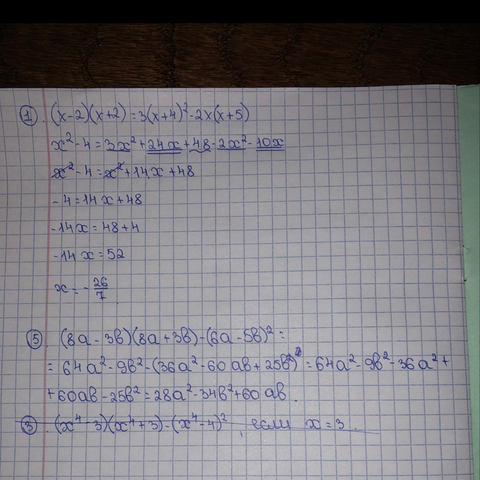 ① (x-2)(x+2)=3(x+4)²-2x(x+5)
x²-4=3x²+24x+48-2x²-10x
x²-4=x²+14x+48
-4=14x+48
-14x=48+4
-14x=52
x=-26/7
⑤ (8a-3в)(8a+3в)-(6a-5в)²=
=64a²-9в²-(36a²-60aв+25в²)=64a²-9в²-36a²+
+60aв-25в²=28a²-34в²+60aв.
③ (x⁴-3)(x⁴+3)-(x⁴-4)², если x=3.